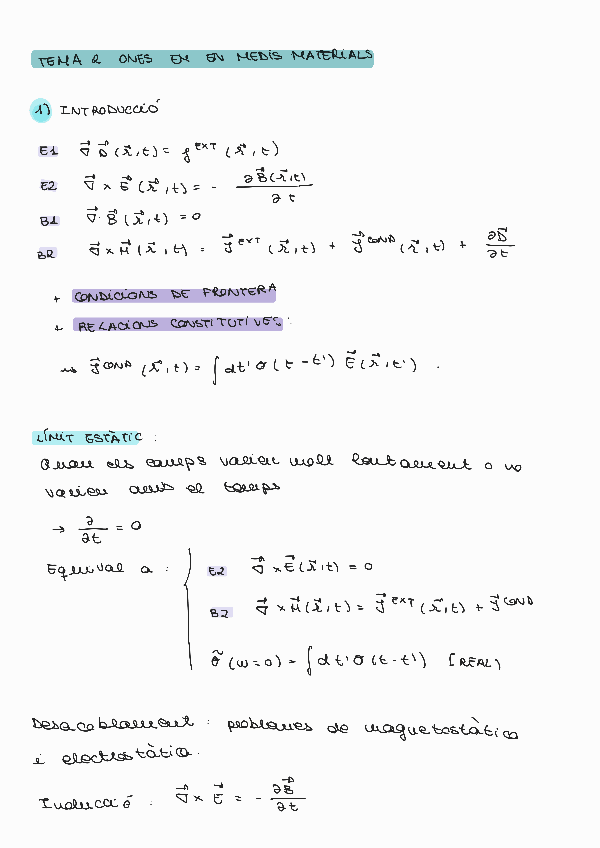 TEMA 2 ONES EM EN MEDIS MATERIALS
1) INTRODUCCIÓ
E1 ∇⃗ D⃗ (r⃗,t) = ρ^EXT (r⃗,t)
E2 ∇⃗ × E⃗ (r⃗,t) = - ∂B⃗(r⃗,t)/∂t
B1 ∇⃗·B⃗ (r⃗,t) = 0
B2 ∇⃗×H⃗ (r⃗,t) = J⃗^EXT (r⃗,t) + J⃗^COND (r⃗,t) + ∂D⃗/∂t
+ CONDICIONS DE FRONTERA
+ RELACIONS CONSTITUTIVES:
⇝ J⃗^COND (r⃗,t) = ∫dt' σ(t-t') E⃗(r⃗,t').
LÍMIT ESTÀTIC:
Quan els camps varien molt lentament o no
varien amb el temps
→ ∂/∂t = 0
Equival a: { E2 ∇⃗×E⃗(r⃗,t) = 0
B2 ∇⃗×H⃗(r⃗,t) = J⃗^EXT (r⃗,t) + J⃗^COND
σ̃(ω=0) = ∫dt' σ(t-t') [REAL)
Desacoblament: problemes de magnetostàtica
i electrostàtica.
Inducció: ∇⃗× E⃗ = - ∂B⃗/∂t